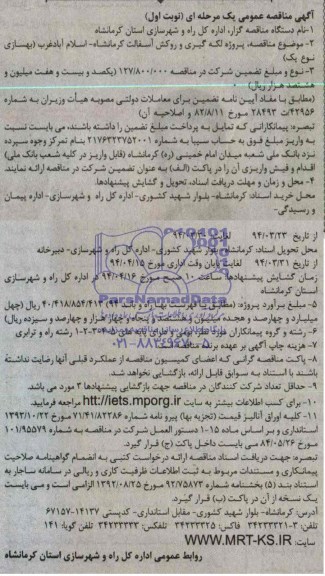 آگهی مناقصه عمومی یک مرحله ای (نوبت اول)
۱-نام دستگاه مناقصه گزار: اداره کل راه و شهرسازی استان کرمانشاه
۲- موضوع مناقصه: پروژه لکه گیری و روکش آسفالت کرمانشاه- اسلام آبادغرب (بهسازی
نوع یک)
۳- نوع و مبلغ تضمین شرکت در مناقصه ۱۲۷/۸۰۰/۰۰۰ (یکصد و بیست و هفت میلیون و
هشتصد هزار ریال)
(مطابق با مفاد آیین نامه تضمین برای معاملات دولتی مصوبه هیأت وزیران به شماره
۴۲۹۵۶/ت ۲۸۴۹۳ مورخ ۸۲/۸/۱۱ و اصلاحیه آن)
تبصره: پیمانکارانی که تمایل به پرداخت مبلغ تضمین را داشته باشند، می بایست نسبت
به واریز مبلغ فوق به حساب سیبا به شماره ۲۱۷۶۴۴۲۳۷۵۲۰۰۱ بنام تمرکز وجوه سپرده
نزد بانک ملی شعبه میدان امام خمینی (ره) کرمانشاه (قابل واریز در کلیه شعب بانک ملی)
اقدام و فیش واریزی آن را در پاکت (الف) به عنوان تضمین شرکت در مناقصه ارائه نمایند.
۴- محل و زمان و مهلت دریافت اسناد، تحویل و گشایش پیشنهادها.
محل خرید اسناد: کرمانشاه- بلوار شهید کشوری- اداره کل راه و شهرسازی- اداره پیمان و
رسیدگی-
از تاریخ ۹۴/۰۳/۲۳ لغایت
محل تحویل اسناد: کرمانشاه- بلوار شهید کشوری- اداره کل راه و شهرسازی- دبیرخانه
از تاریخ ۹۴/۰۳/۳۱ لغایت پایان وقت اداری مورخ ۹۴/۰۴/۱۵
زمان گشایش پیشنهادها: ساعت ۱۰ صبح مورخ ۹۴/۰۴/۱۶ در اداره کل راه و شهرسازی
استان کرمانشاه
۵- مبلغ برآورد پروژه: (مطابق با فهرست بهاء راه و باند ۹۴) ۴۰/۴۱۸/۸۵۴/۴۱۳ ریال (چهل
میلیارد و چهارصد و هجده میلیون و هشتصد و پنجاه و چهار هزار و چهارصد و سیزده ریال)
۶- رشته و گروه پیمانکاران مورد نظر: رشته راه و ترابری
۷- هزینه چاپ آگهی بر عهده برنده مناقصه
۸- پاکت مناقصه گرانی که اعضای کمیسیون مناقصه از عملکرد قبلی آنها رضایت نداشته
باشند با استناد به سوابق قابل ارائه، بازگشایی نخواهد شد.
۹- حداقل تعداد شرکت کنندگان در مناقصه جهت بازگشایی پیشنهادها ۳ مورد می باشد.
۱۰- برای کسب اطلاعات بیشتر به سایت http://iets.mporg.ir مراجعه فرمایید.
۱۱- کلیه اوراق آنالیز قیمت (تجزیه بها) پیرو نامه شماره ۷۱/۴۱/۸۲۲۸۶ مورخ ۱۳۹۳/۱۰/۲۲
استانداری و بر اساس ماده ۱۵-۱ دستور العمل شرکت در مناقصه به شماره ۱۰۱/۹۵۵۷۹
مورخ ۸۴/۰۵/۲۶ می بایست داخل پاکت (ج) قرار گیرد.
تبصره: جهت دریافت اسناد مناقصه ارائه درخواست کتبی به انضمام گواهینامه صلاحیت
پیمانکاری و مستندات مربوط به ثبت اطلاعات ظرفیت کاری و ریالی در سامانه ساجار به
استناد بند (۵) بخشنامه شماره ۹۲/۷۵۸۷۳ مورخ ۱۳۹۲/۰۸/۲۵ الزامی است و می بایست
یک نسخه از آن در پاکت (ب) قرار گیرد.
آدرس: کرمانشاه- بلوار شهید کشوری- مقابل استانداری- کدپستی ۱۴۱۳۷-۶۷۱۵۷
تلفن: ۳-۳۴۲۳۳۲۲۱ فاکس: ۳۴۲۳۳۲۲۵ تلفکس: ۳۴۲۳۳۳۳۳ تلفن گویا: ۱۴۱
سایت: WWW.MRT-KS.IR
روابط عمومی اداره کل راه و شهرسازی استان کرمانشاه
ParsNamadData
۰۲۱-۸۸۳۴۹۶۷۰-۵